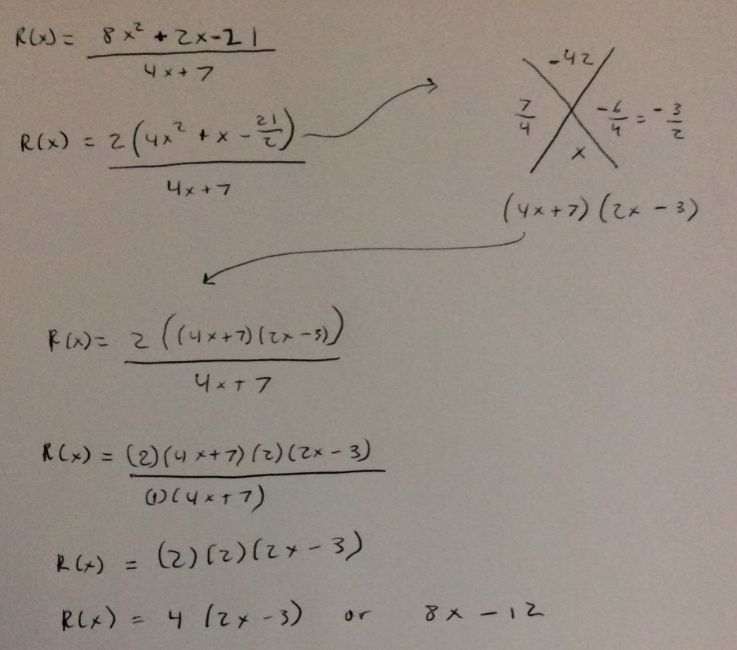 R(x) = (8x² + 2x - 21)/(4x + 7)
R(x) = 2(4x² + x - 21/2)/(4x + 7)
-42
7/4 -6/4 = -3/2
x
(4x+7)(2x - 3)
R(x) = 2((4x+7)(2x-3))/(4x + 7)
R(x) = (2)(4x+7)(2)(2x - 3)/(1)(4x+7)
R(x) = (2)(2)(2x - 3)
R(x) = 4(2x - 3) or 8x - 12